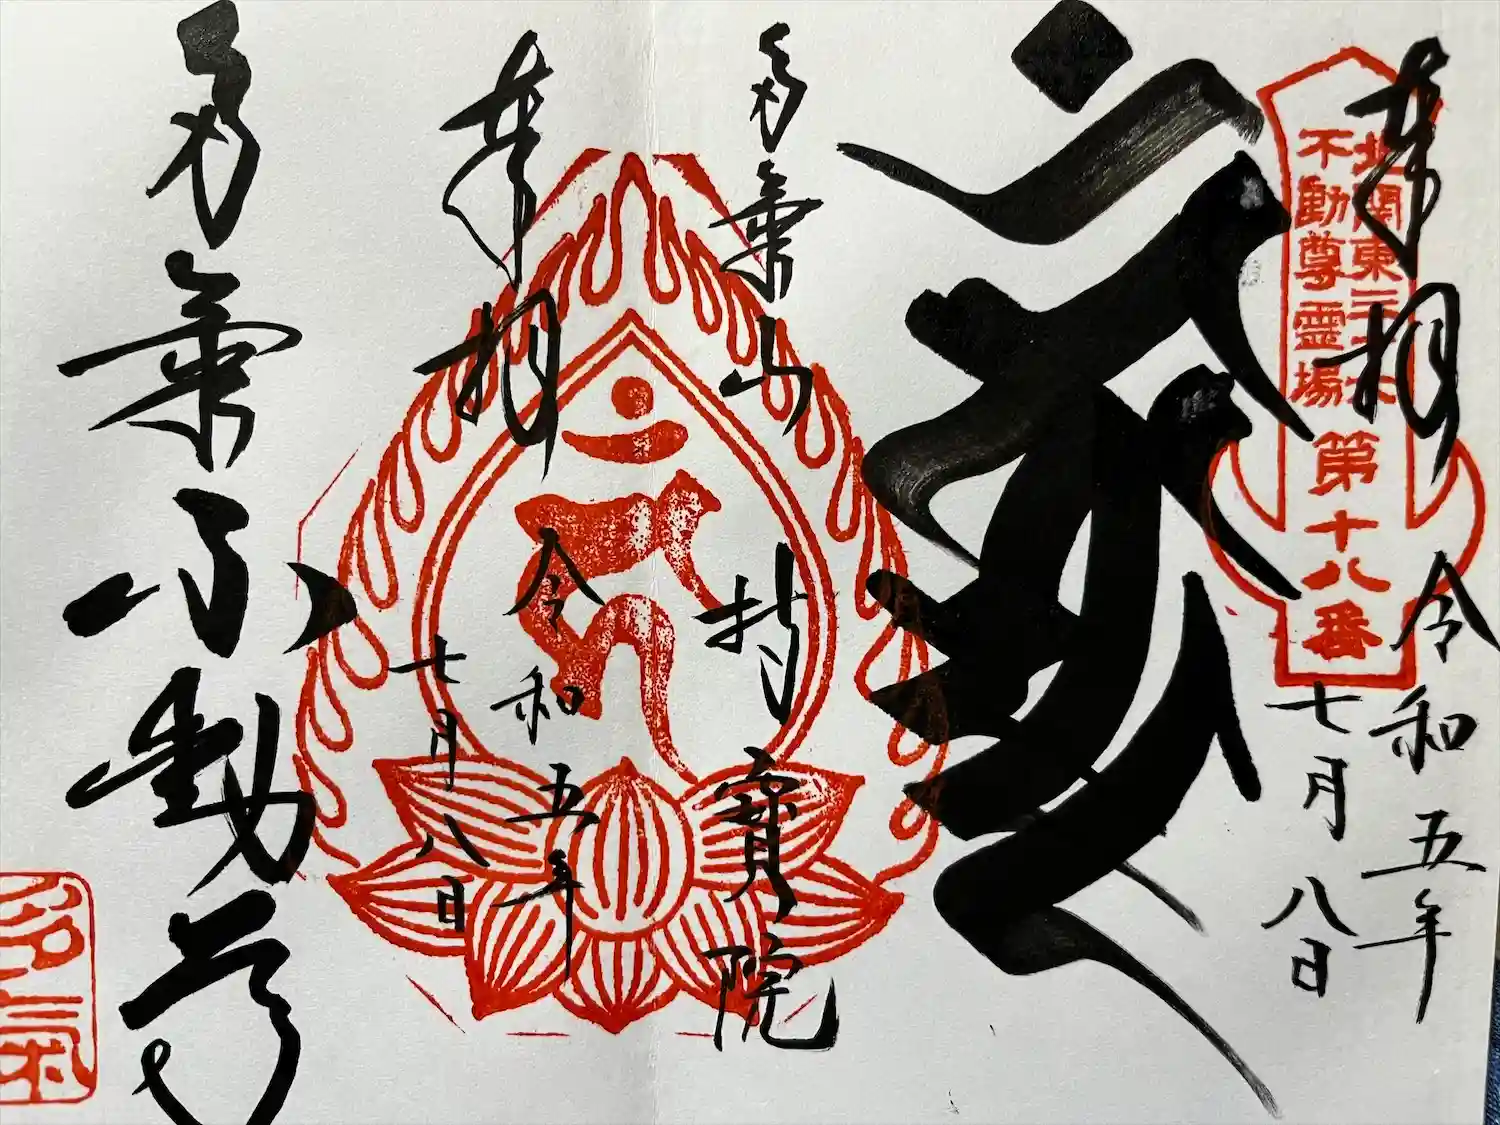 奉拝
令和五年
七月八日
北関東三十六
不動尊霊場
第十八番
多氣山
持寶院
奉拝
令和五年
七月八日
多氣不動尊